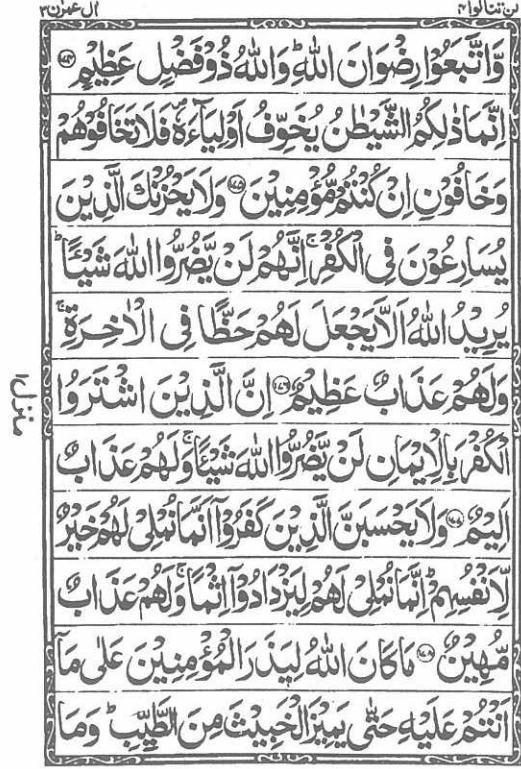 لن تنالوا ۴
اٰل عمرٰن ۳
وَّاتَّبَعُوْا رِضْوَانَ اللّٰهِ ؕ وَاللّٰهُ ذُوْ فَضْلٍ عَظِيْمٍ ۝۱۷۴
اِنَّمَا ذٰلِكُمُ الشَّيْطٰنُ يُخَوِّفُ اَوْلِيَآءَهٗ ۪ فَلَا تَخَافُوْهُمْ
وَخَافُوْنِ اِنْ كُنْتُمْ مُّؤْمِنِيْنَ ۝۱۷۵ وَلَا يَحْزُنْكَ الَّذِيْنَ
يُسَارِعُوْنَ فِى الْكُفْرِ ۚ اِنَّهُمْ لَنْ يَّضُرُّوا اللّٰهَ شَيْـًٔا ؕ
يُرِيْدُ اللّٰهُ اَلَّا يَجْعَلَ لَهُمْ حَظًّا فِى الْاٰخِرَةِ ۚ
وَلَهُمْ عَذَابٌ عَظِيْمٌ ۝۱۷۶ اِنَّ الَّذِيْنَ اشْتَرَوُا
الْكُفْرَ بِالْاِيْمَانِ لَنْ يَّضُرُّوا اللّٰهَ شَيْـًٔا ۚ وَلَهُمْ عَذَابٌ
اَلِيْمٌ ۝۱۷۷ وَلَا يَحْسَبَنَّ الَّذِيْنَ كَفَرُوْۤا اَنَّمَا نُمْلِىْ لَهُمْ خَيْرٌ
لِّاَنْفُسِهِمْ ؕ اِنَّمَا نُمْلِىْ لَهُمْ لِيَزْدَادُوْۤا اِثْمًا ۚ وَلَهُمْ عَذَابٌ
مُّهِيْنٌ ۝۱۷۸ مَا كَانَ اللّٰهُ لِيَذَرَ الْمُؤْمِنِيْنَ عَلٰى مَاۤ
اَنْتُمْ عَلَيْهِ حَتّٰى يَمِيْزَ الْخَبِيْثَ مِنَ الطَّيِّبِ ؕ وَمَا
منزل ۱